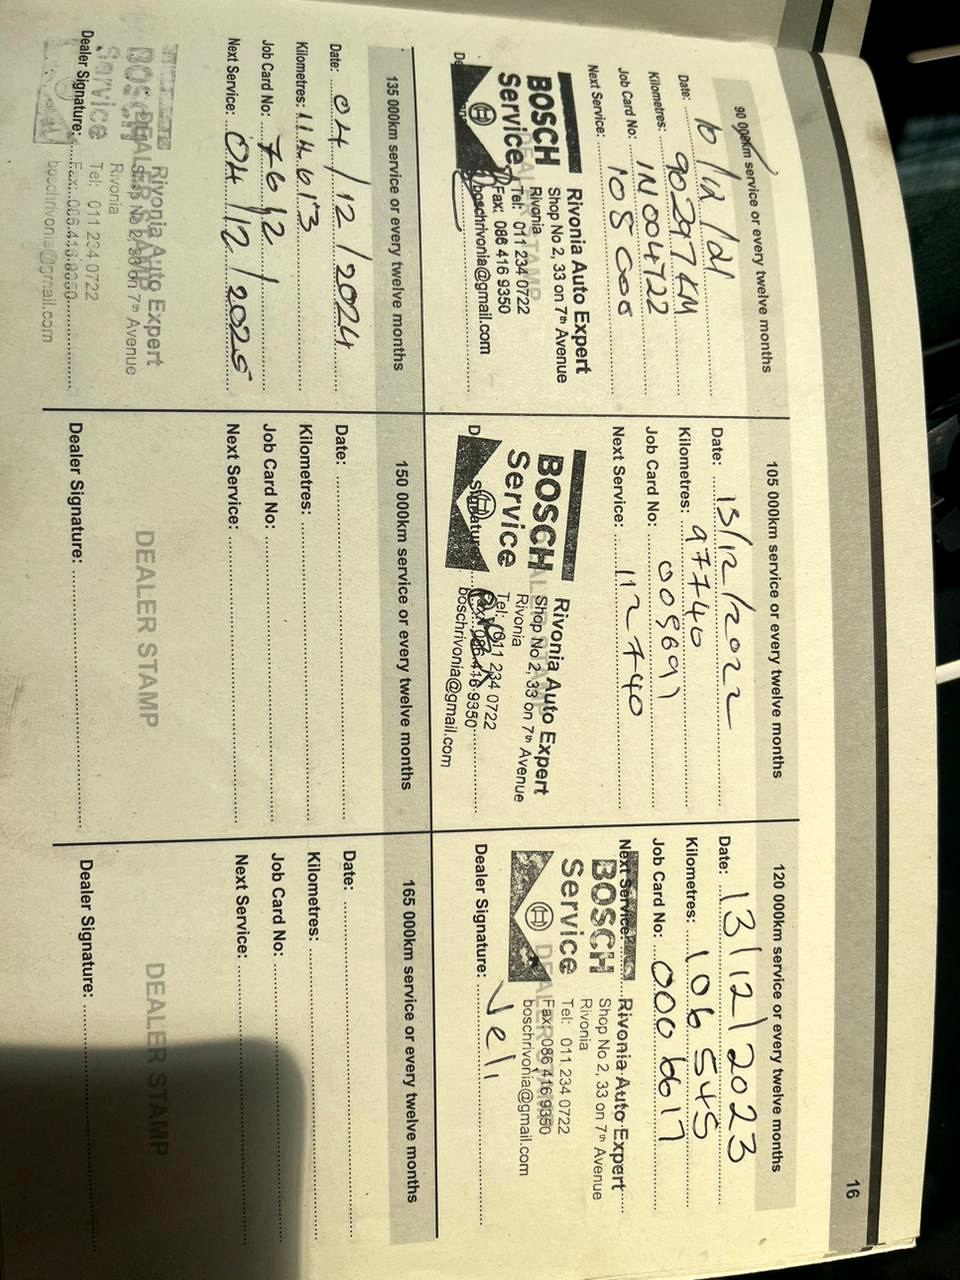 16
90 000km service or every twelve months
Date: 10/12/21
Kilometres: 90297KM
Job Card No: IN004722
Next Service: 105 000
BOSCH
Service
Rivonia Auto Expert
Shop No 2, 33 on 7th Avenue
Rivonia
Tel: 011 234 0722
Fax: 086 416 9350
boschrivonia@gmail.com
105 000km service or every twelve months
Date: 15/12/2022
Kilometres: 97740
Job Card No: 005691
Next Service: 112740
BOSCH
Service
Rivonia Auto Expert
Shop No 2, 33 on 7th Avenue
Rivonia
Tel: 011 234 0722
Fax: 086 416 9350
boschrivonia@gmail.com
120 000km service or every twelve months
Date: 13/12/2023
Kilometres: 106 545
Job Card No: 0006617
Next Service:
BOSCH
Service
Rivonia Auto Expert
Shop No 2, 33 on 7th Avenue
Rivonia
Tel: 011 234 0722
Fax: 086 416 9350
boschrivonia@gmail.com
Dealer Signature: Veli
135 000km service or every twelve months
Date: 04/12/2024
Kilometres: 114 613
Job Card No: 7612
Next Service: 04/12/2025
DEALER STAMP
BOSCH
Service
Rivonia Auto Expert
Shop No 2, 33 on 7th Avenue
Rivonia
Tel: 011 234 0722
Fax: 086 416 9350
boschrivonia@gmail.com
Dealer Signature:
150 000km service or every twelve months
Date:
Kilometres:
Job Card No:
Next Service:
DEALER STAMP
Dealer Signature:
165 000km service or every twelve months
Date:
Kilometres:
Job Card No:
Next Service:
DEALER STAMP
Dealer Signature: